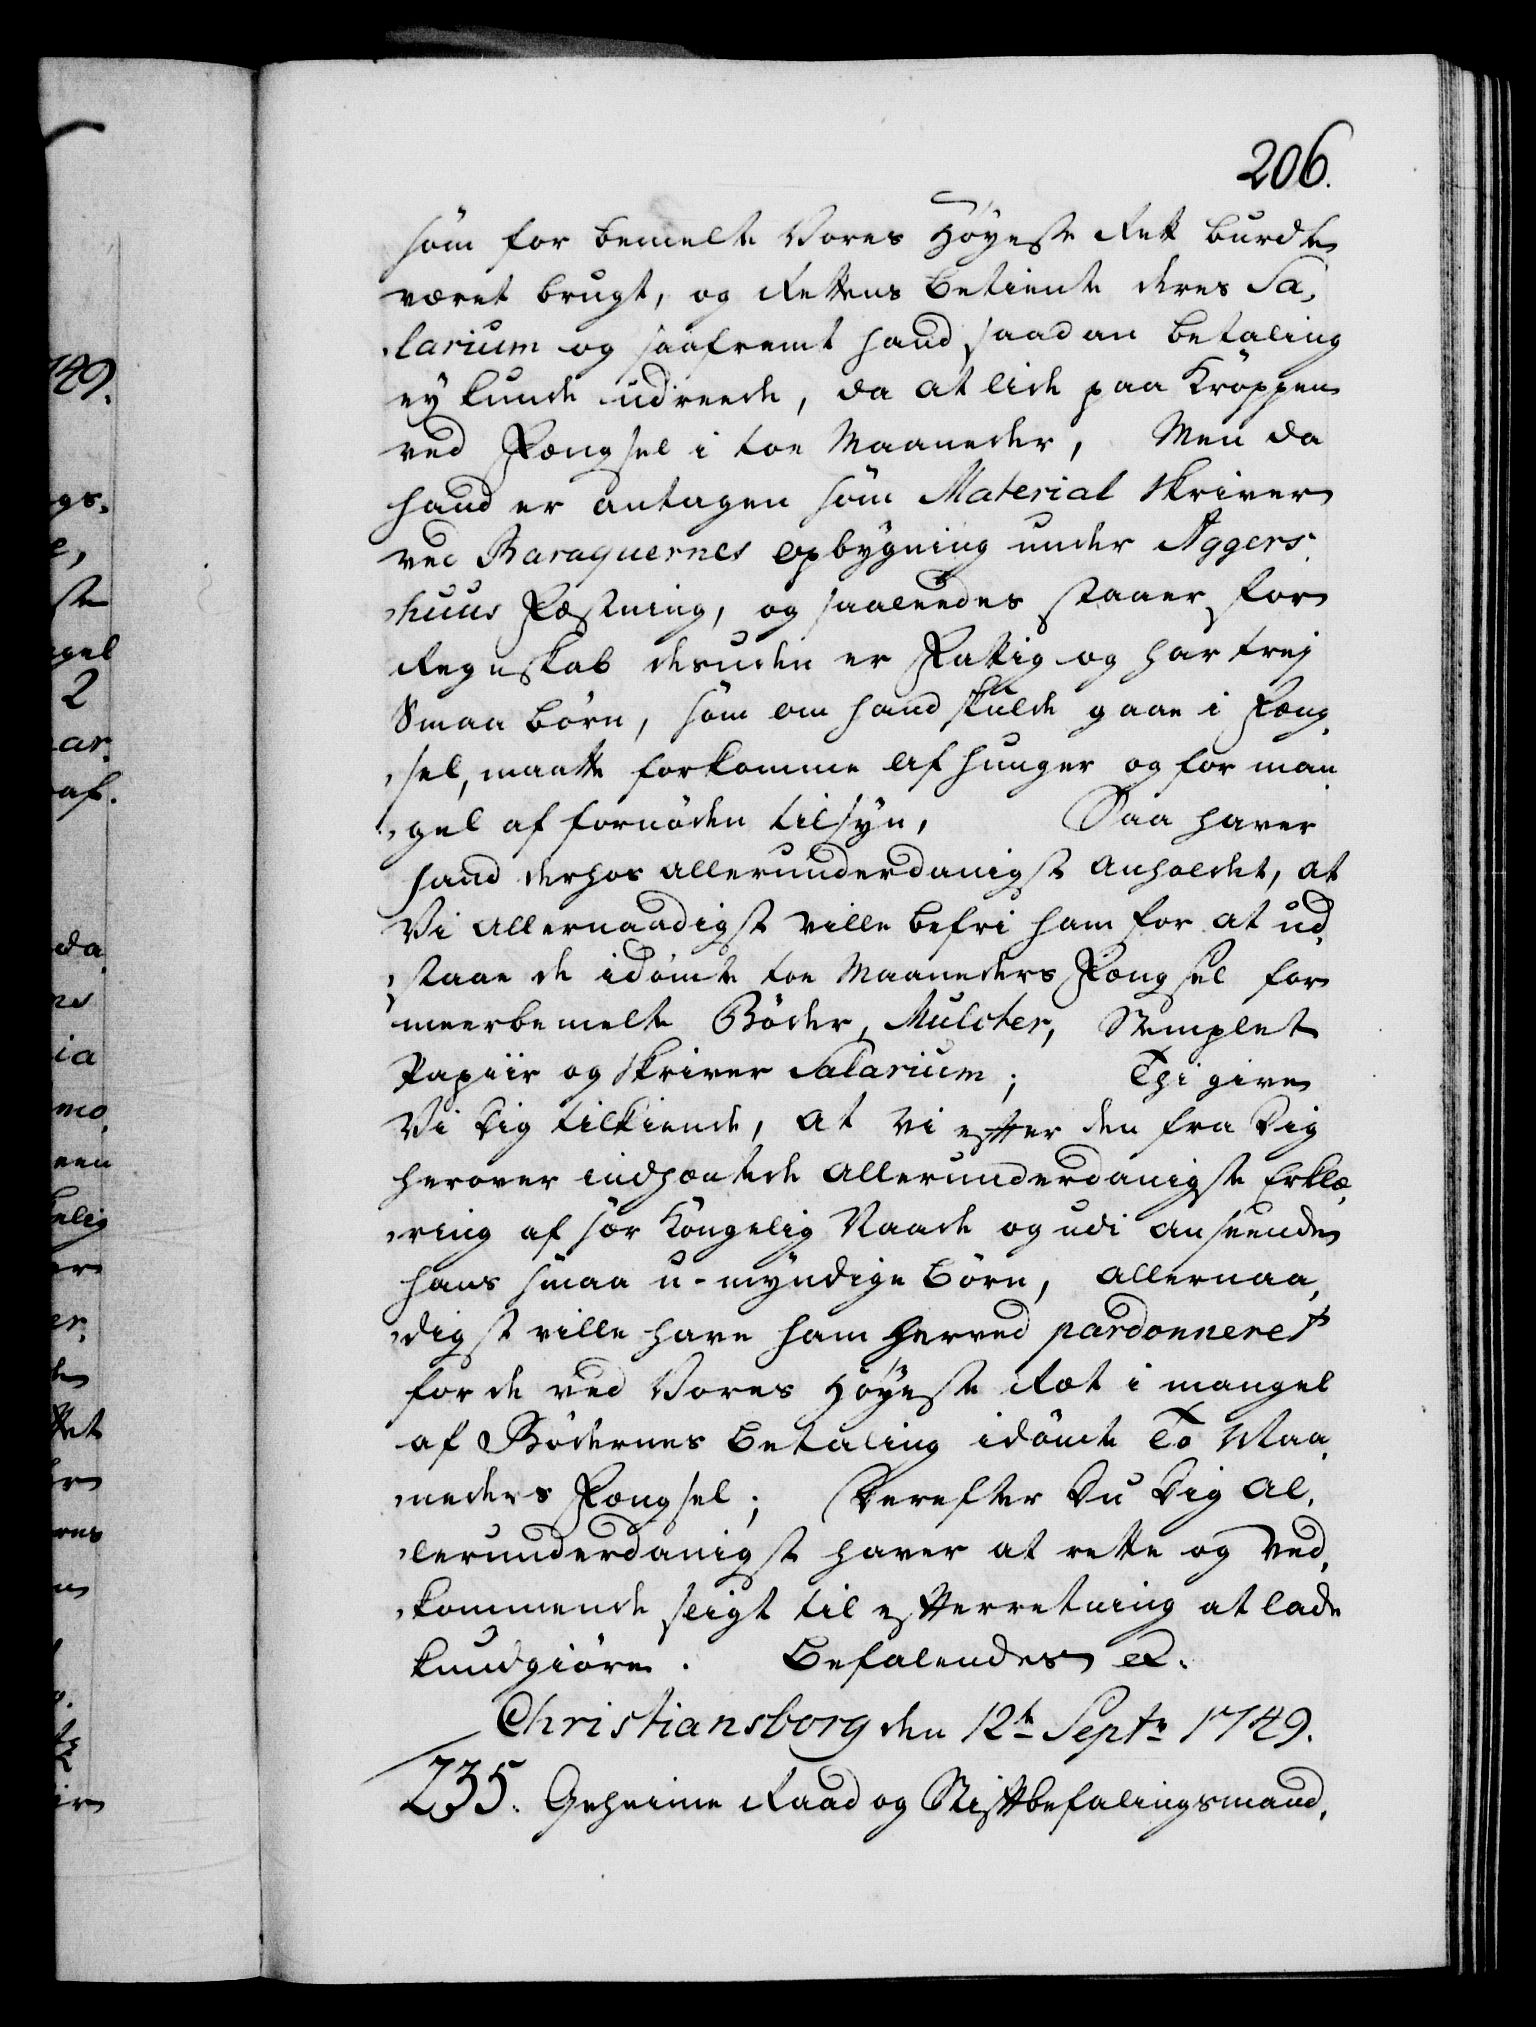 206.
som for bemelte Vores Høyeste Rett burde
været brugt, og Rettens Betiente deres Sa,
larium og saafremt hand saadan betaling
ey kunde udreede, da at lide paa Kroppen
ved Fængsel i toe Maaneder, Men da
hand er antagen som Material Skriver
ved Baraquernes opbygning under Aggers,
huus Fæstning, og saaleedes staaer for
Regnskab desuden er Fattig og har trej
Smaa børn, som om hand skulde gaae i Fæng,
sel, maatte forkomme af hunger og for man
gel af fornøden tilsyn, Saa haver
hand derhos allerunderdanigst anholdet, at
Vi allernaadigst ville befri ham for at ud,
staae de idømte toe Maaneders Fængsel for
meerbemelte Bøder, Mulcter, Stemplet
Papiir og Skriver Salarium; Thi give
Vi Dig tilkiende, at Vi efter den fra Dig
herover indhæntede allerunderdanigste Erklæ,
ring af sær Kongelig Naade og udi anseende
hans smaa u-myndige børn, allernaa,
digst ville have ham herved pardonneret
for de ved Vores Høyeste Ræt i mangel
af Bødernes betaling idømte To Maa,
neders Fængsel; Derefter Du Dig al,
lerunderdanigst haver at rette og Ved,
kommende sligt til efterretning at lade
kundgiøre. Befalendes &.
Christiansborg den 12te Septr 1749.
235. Geheime Raad og Stiftbefalingsmand,
149.